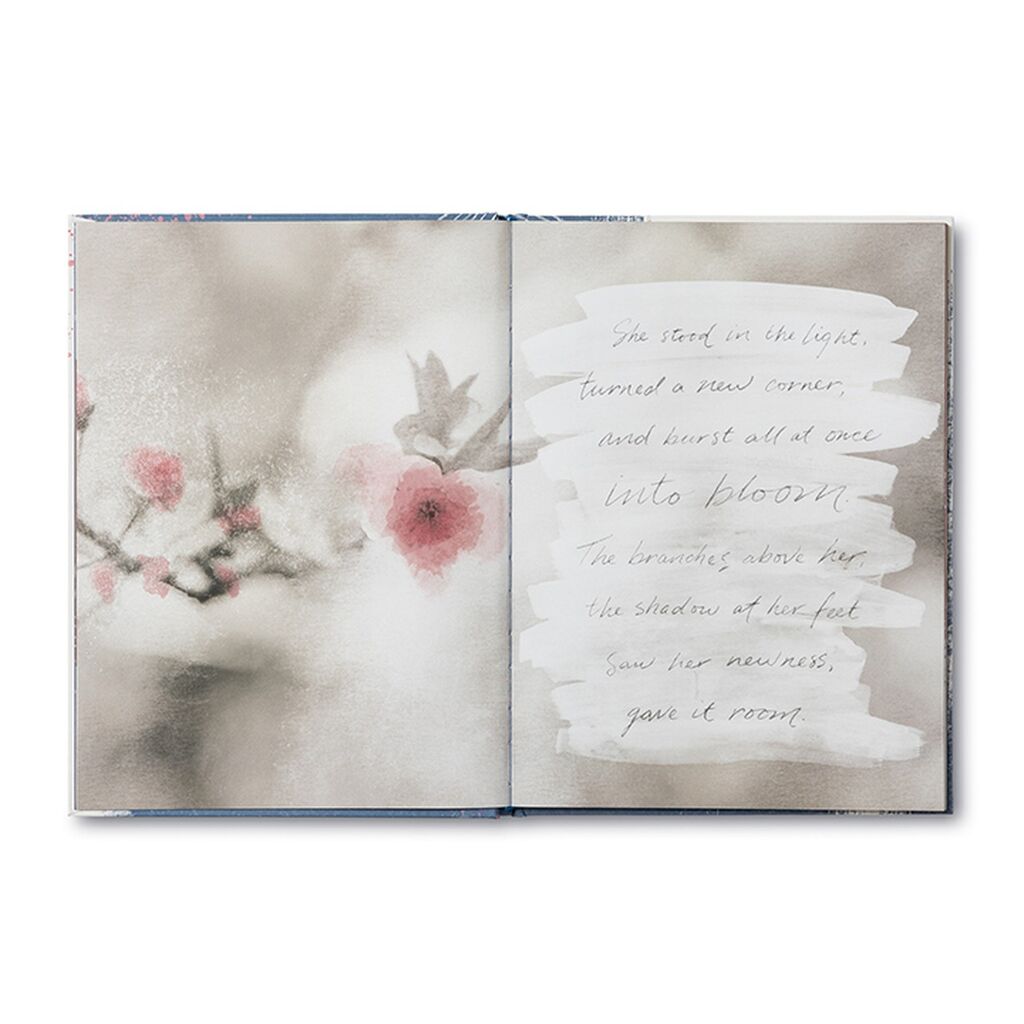 She stood in the light,
turned a new corner,
and burst all at once
into bloom.
The branches above her,
the shadow at her feet
saw her newness,
gave it room.